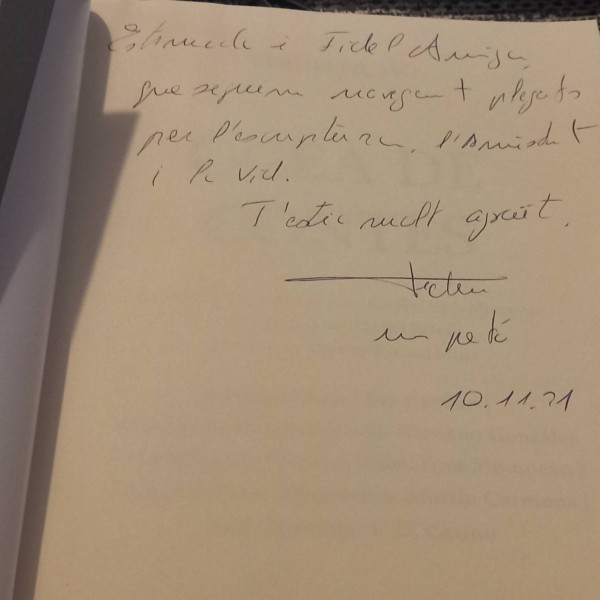 Estimada i Fidel Amiga,
que seguem navegant plegats
per l'escriptura, l'Amistat
i la vida.
T'estic molt agraït.
un petó
10.11.21